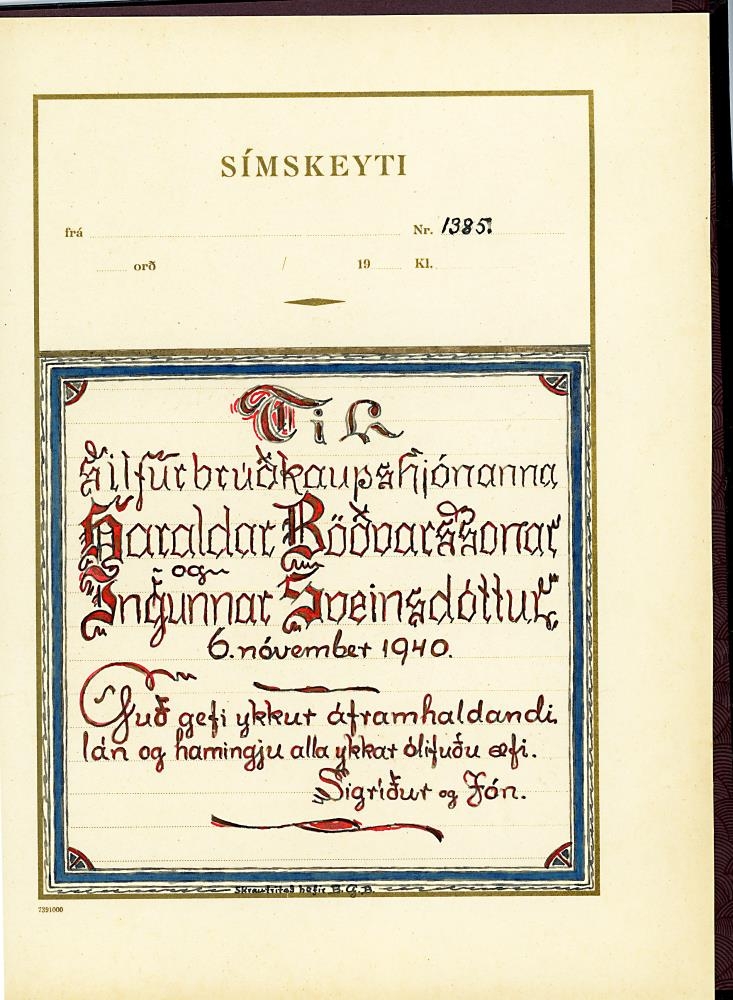 SÍMSKEYTI
frá Nr. 1385.
orð / 19 Kl.
Til
silfurbrúðkaupshjónanna
Haraldar Böðvarssonar
og
Ingunnar Sveinsdóttur
6. nóvember 1940.
Guð gefi ykkur áframhaldandi
lán og hamingju alla ykkar ólifuðu æfi.
Sigríður og Jón.
Skrautritað hefir B. G. B.
7391000